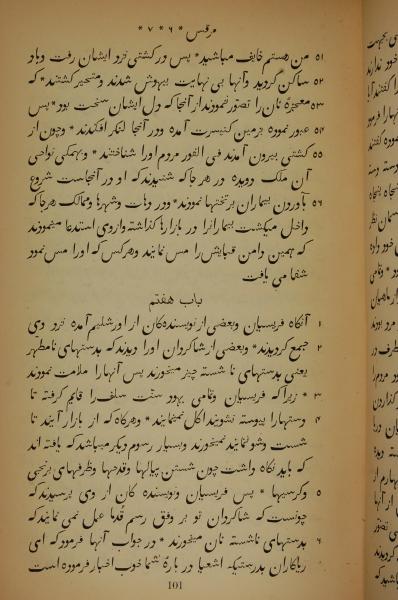 مرقس * ۶ * ۷ *
۵۱ من هستم خایف مباشید * پس در کشتی نزد ایشان رفت و باد
۵۲ ساکن گردید و آنها بی نهایت بیهوش شدند و متحیر گشتند * که
۵۳ معجزهٔ نان را تصور ننمودند از آنجا که دل ایشان سخت بود * پس
۵۴ عبور نموده بزمین کنیسرت آمده و در آنجا لنکر افکندند * و چون از
۵۵ کشتی بیرون آمدند فی الفور مردم او را شناختند * و بهمگی نواحی
آن ملک دویده در هر جا که شنیدند که او در آنجاست شروع
۵۶ بآوردن بیماران بر تختها نمودند * و در دهات و شهرها و ممالک هر جا که
داخل میگشت بیماران را در بازارها گذاشته و از وی استدعا مینمودند
که همین دامن قبایش را مس نمایند و هر کس که او را مس نمود
شفا می یافت
باب هفتم
۱ آنگاه فریسیان و بعضی از نویسنده‌کان از اورشلیم آمده نزد وی
۲ جمع گردیدند * و بعضی از شاکردان او را دیدند که بدستهای نامطهر
یعنی بدستهای نا شسته چیز میخورند پس آنها را ملامت نمودند
۳ * زیرا که فریسیان و تمامی یهود سنت سلف را قایم گرفته تا
۴ دستها را پیوسته نشویند اکل نمینمایند * و هرگاه که از بازار آیند تا
شست و شو ننمایند نمیخورند و بسیار رسوم دیگر میباشد که یافته اند
که باید نگاه داشت چون شستن پیالها و قدحها و ظرفهای برنجی
۵ و کرسیها * پس فریسیان و نویسنده کان از وی پرسیدند که
چونست که شاکردان تو بر وفق رسم قدما عمل نمی نمایند که
۶ بدستهای ناشسته نان میخورند * در جواب آنها فرمود که ای
ریاکاران بدرستیکه اشعیا در بارهٔ شما خوب اخبار فرموده است
101